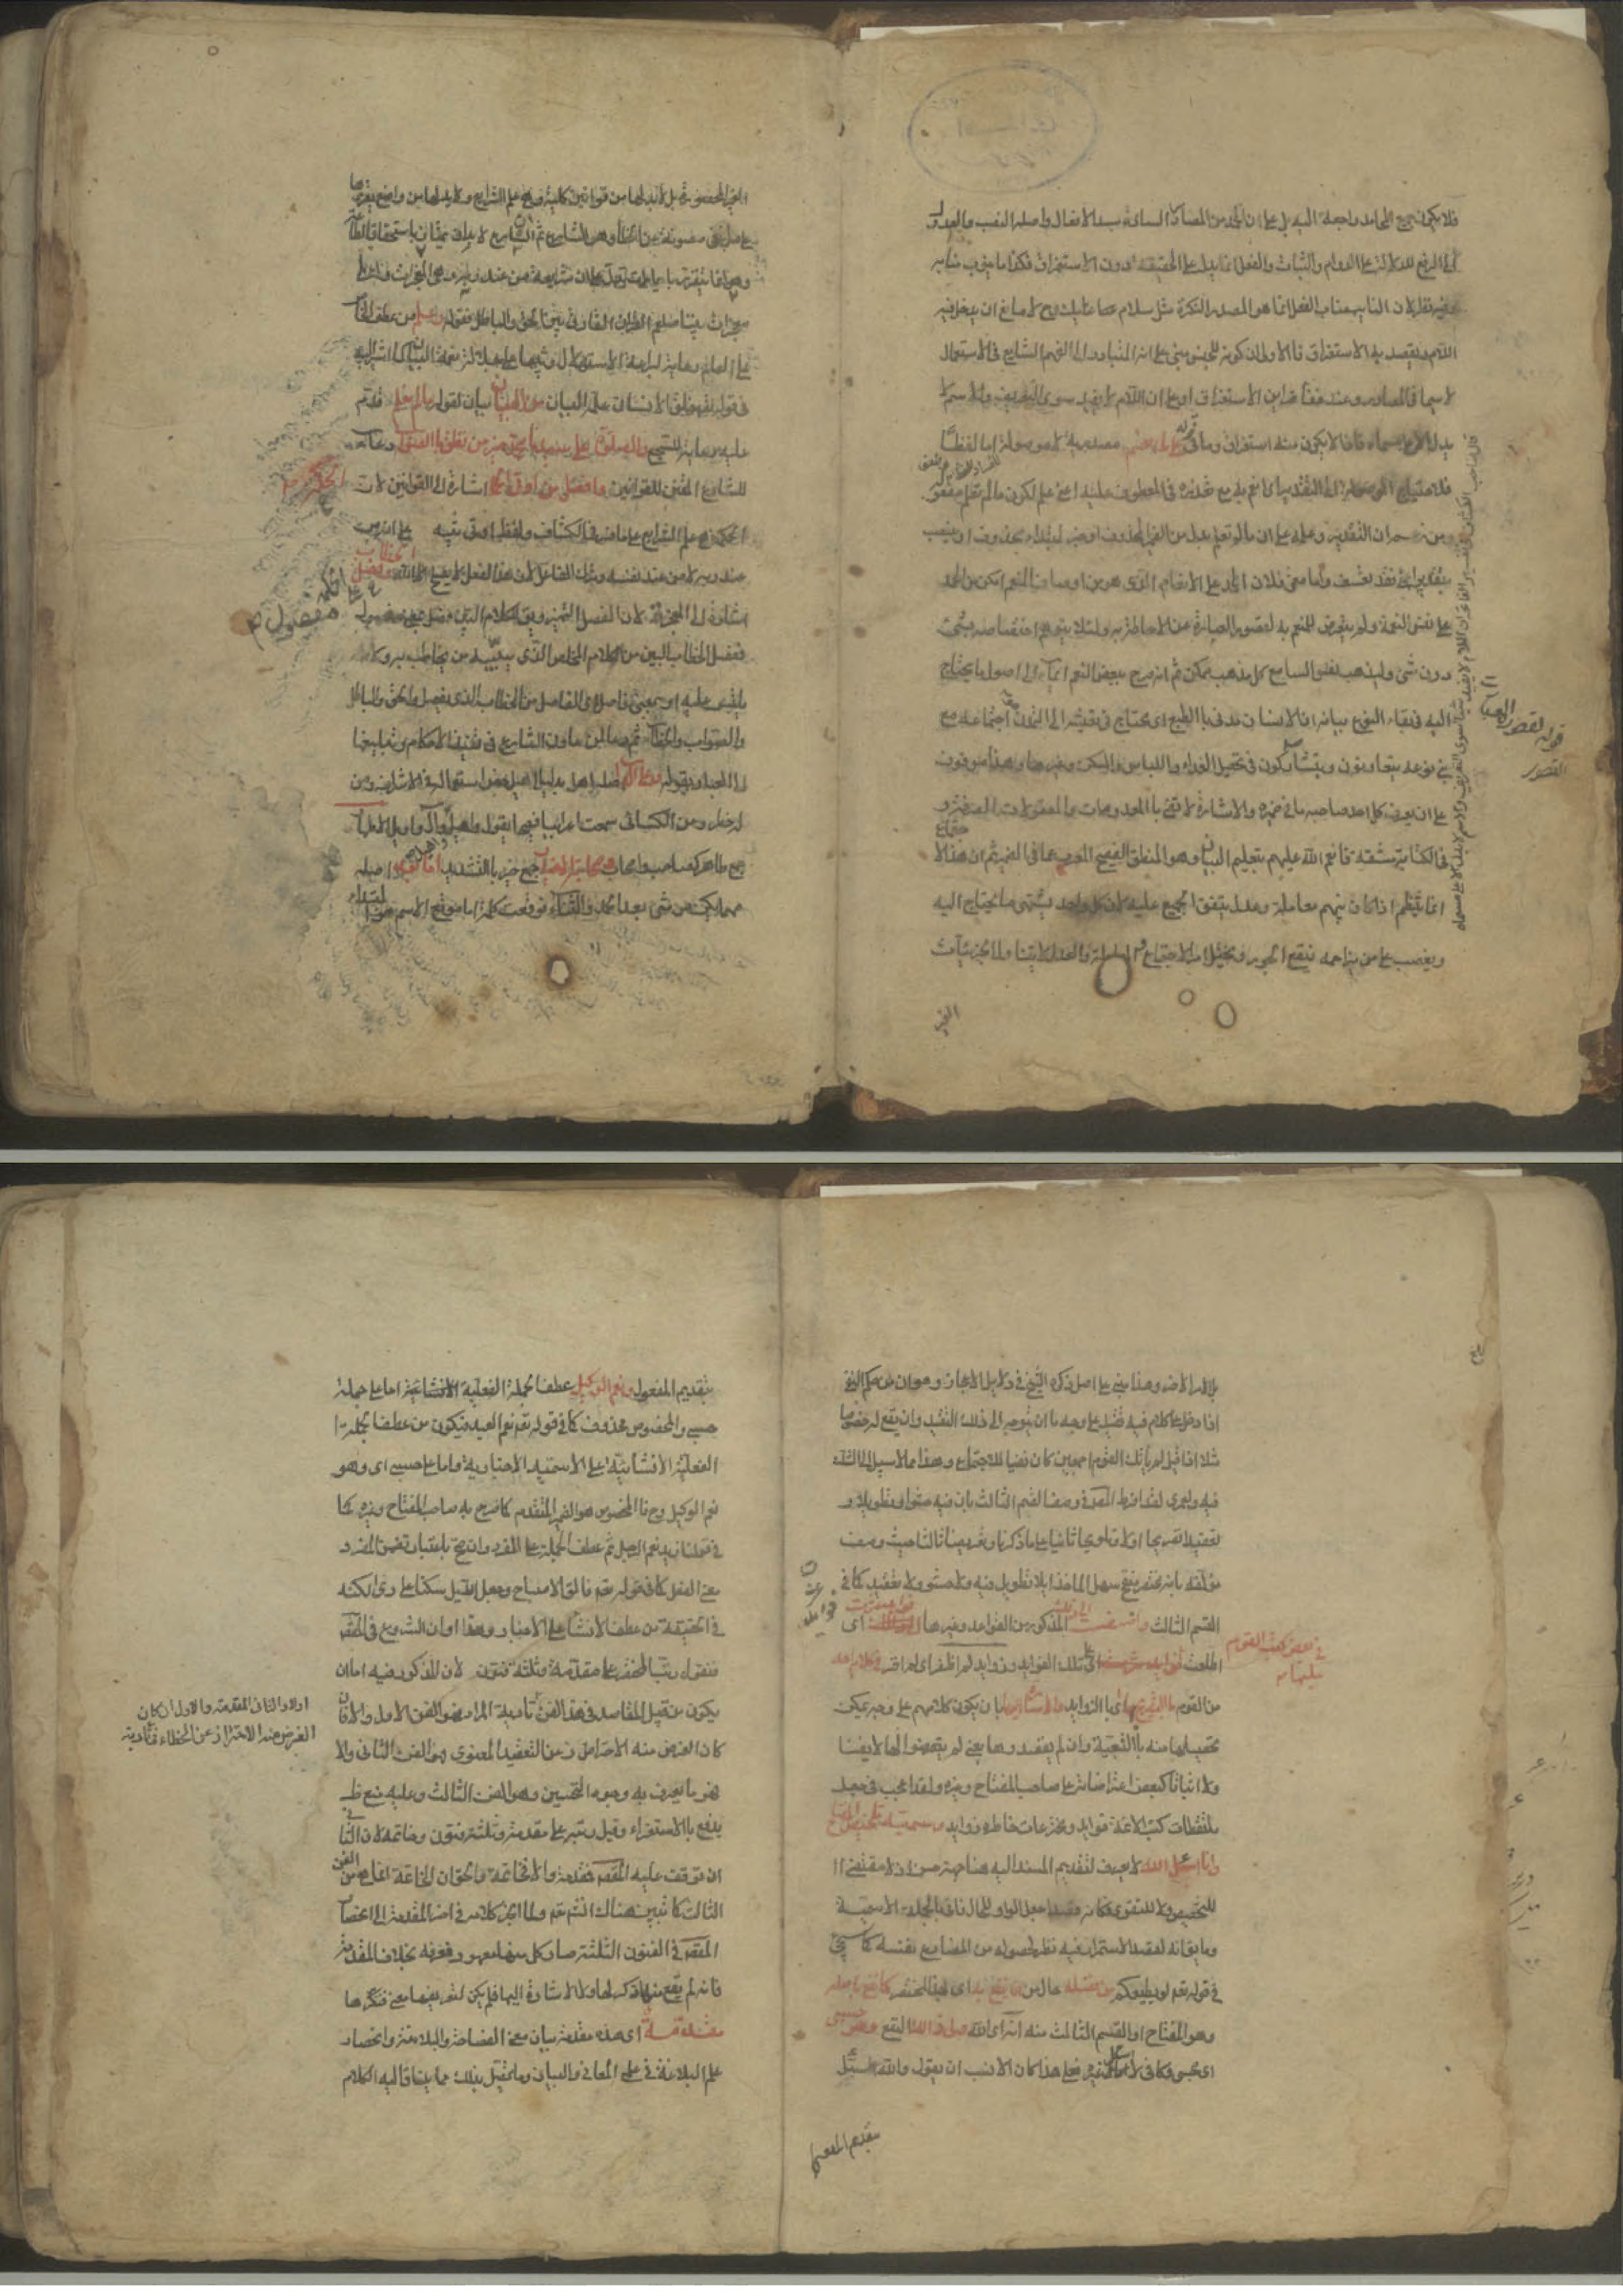 فلا يكون جميع المحامد راجعة اليه بل على ان الحمد من المصادر السادة مسد الافعال واصله النصب والعدول
الى الرفع للدلالة على الدوام والثبات والفعل انما يدل على الحقيقة دون الاستغراق فكذا ما ينوب منابه
وفيه نظر لان النايب مناب الفعل انما هو المصدر النكرة مثل سلام عليك وح لا مانع ان يدخل فيه
اللام ويقصد به الاستغراق فالاولى ان كونه للجنس مبنى على انه المتبادر الى الفهم الشايع فى الاستعمال
لا سيما فى المصادر وعند خفاء قراين الاستغراق او على ان اللام لا يفيد سوى التعريف والاسم لا
يدل الا على مسماه فاذن لا يكون ثمه استغراق وما فى قوله على ما انعم مصدرية لا موصولة اما لفظا
فلاحتياج الموصولة الى التقدير اى انعم به مع تعذره فى المعطوف عليه اعنى علم لكون ما لم نعلم مفعوله
ومن زعم ان التقدير وعلمه على ان ما لم نعلم بدل من الضمير المحذوف او خبر لمبتداء محذوف او نصب
بتقدير اعنى فقد تعسف واما معنى فلان الحمد على الانعام الذى هو من اوصاف المنعم امكن من الحمد
على نفس النعمة ولم يتعرض للمنعم به لقصور العبارة عن الاحاطة به ولئلا يتوهم اختصاصه بشئ
دون شئ وليذهب نفس السامع كل مذهب ممكن ثم انه صرح ببعض النعم ايماء الى اصول ما يحتاج
اليه فى بقاء النوع بيانه ان الانسان مدنى بالطبع اى محتاج فى تعيشه الى التمدن وهو اجتماعه مع
بنى نوعه يتعاونون ويتشاركون فى تحصيل الغذاء واللباس والمسكن وغيرها وهذا موقوف
على ان يعرف كل احد صاحبه ما فى ضميره والاشارة لا تفى بالمعدومات والمعقولات الصرفة و
فى الكتابة مشقة فانعم الله عليهم بتعليم البيان وهو المنطق الفصيح المعرب عما فى الضمير ثم ان هذا الا
انما ينتظم اذا كان بينهم معاملة وعدل يتفق الجميع عليه لان كل واحد يشتهى ما يحتاج اليه
ويغضب على من يزاحمه فيقع الجور ويختل امر الاجتماع والمعاملة والعدل لا يتناول الجزئيات
الغير
الغير المحصورة بل لا بد لها من قوانين كلية وهى علم الشرايع ولا بد لها من واضع يقررها
على ما ينبغى مصونة عن الخطاء وهو الشارع ثم الشارع لا بد ان يمتاز باستحقاق الطاعة
وهو انما يتقرر بايات تدل على ان شريعته من عند ربه وهى المعجزات واعلى
معجزات نبينا صلعم القران الفارق بين الحق والباطل فقوله وعلم من عطف الخاص
على العام رعاية لبراعة الاستهلال وتنبيها على جلالة نعمة البيان كما اشير اليه
فى قوله تع خلق الانسان علمه البيان من البيان بيان لقوله ما لم نعلم قدم
عليه رعاية للسجع والصلوة على سيدنا محمد خير من نطق بالصواب دعاء
للشارع المقنن للقوانين وافضل من اوتى الحكمة اشارة الى القوانين لان
الحكمة هى علم الشرايع على ما فسر فى الكشاف ولفظ اوتى تنبيه على انه من
عند ربه لا من عند نفسه وترك الفاعل لان هذا الفعل لا يصلح الا لله وفصل الخطاب
اشارة الى المعجزة لان الفصل التميز ويق للكلام البين فصل بمعنى مفصول
ففصل الخطاب البين من الكلام المخلص الذى يتبينه من يخاطب به ولا
يلتبس عليه او بمعنى فاصل اى الفاصل من الخطاب الذى يفصل بين الحق والباطل
والصواب والخطاء ثم دعا لمن عاون الشارع فى تنفيذ الاحكام وتبليغها
الى العباد بقوله وعلى اله اصله اهل بدليل اهيل خص استعماله فى الاشراف ومن
له خطر وعن الكسائى سمعت اعرابيا فصيحا يقول اهل واهيل وال واويل الاطهار
جمع طاهر كصاحب واصحاب وصحابته الاخيار جمع خير بالتشديد اما بعد اصله
مهما يكن من شئ بعد الحمد والثناء فوقعت كلمة اما موقع الاسم هو المبتداء
بلا امر الاخر وهذا مبنى على اصل ذكره الشيخ فى دلايل الاعجاز وهو ان من حكم النفى
اذا دخل على كلام فيه تقييد على وجه ما ان يتوجه الى ذلك التقييد وان يقع له خصوصا
مثلا اذا قيل لم يأتك القوم اجمعين كان نفيا للاجتماع وهذا مما لا سبيل الى الشك
فيه ولعمرى لقد افرط المصنف فى وصف القسم الثالث بان فيه حشوا وتطويلا و
تعقيدا تصريحا اولا وتلويحا ثانيا على ما ذكرنا وتعريضا ثالثا حيث وصف
مؤلفه بانه مختصر منقح سهل الماخذ اى لا تطويل فيه ولا حشو ولا تعقيد كما فى
القسم الثالث واضفت الى ذلك المذكور من القواعد وغيرها فوائد عثرت اى
اطلعت فى بعض كتب القوم عليها على تلك الفوايد وزوايد لم اظفر اى لم افز فى كلام احد
من القوم بالتصريح بها اى بالزوايد ولا الاشارة اليها بان يكون كلامهم على وجه يمكن
تحصيلها منه بالتبعية وان لم يقصدوها يعنى لم يتعرضوا لها لا نفيا
ولا اثباتا كبعض اعتراضاته على صاحب المفتاح وغيره ولقد اعجب فى جعل
ملتقطات كتب الائمة فوايد ومخترعات خاطره زوايد وسميته تلخيص المفتاح
وانا اسئل الله لا يعرف لتقديم المسند اليه هنا جهة حسن اذ لا مقتضى
للتخصيص ولا للتقوى فكانه قصد جعل الواو للحال فاتى بالجملة الاسمية
فى قوله تع لو يطيعكم من فضله حال من ان ينفع به اى بهذا المختصر كما نفع باصله
وهو المفتاح او القسم الثالث منه انه اى الله ولى ذلك النفع وهو حسبى
اى محسبى وكافى لا اسأل غيره فعلى هذا كان الانسب ان يقول والله اسئل
بتقديم المفعول
بتقديم المفعول ونعم الوكيل عطف الجملة الفعلية الانشائية اما على جملة
حسبى والمخصوص محذوف كما فى قوله تع نعم العبد فيكون من عطف الجملة
الفعلية الانشائية على الاسمية الاخبارية واما على حسبى اى وهو
نعم الوكيل وح فالمخصوص هو الضمير المتقدم كما صرح به صاحب المفتاح وغيره
فى قولنا زيد نعم الرجل ثم عطف الجملة على المفرد وان صح باعتبار تضمن المفرد
معنى الفعل كما فى قوله تع فالق الاصباح وجعل الليل سكنا على رأى لكنه
فى الحقيقة من عطف الانشاء على الاخبار وهذا اوان الشروع فى المقصود
فنقول رتب المختصر على مقدمة وثلثة فنون لان المذكور فيه اما ان
يكون من قبيل المقاصد فى هذا الفن
كان الغرض منه الاحتراز عن التعقيد المعنوى فهو الفن الثانى والا
فهو ما يعرف به وجوه التحسين وهو الفن الثالث وعليه منع ظ
يدفع بالاستقراء وقيل رتبه على مقدمة وثلثة فنون وخاتمة لان الثانى
ان توقف عليه المقصود فمقدمة والا فخاتمة والحق ان الخاتمة انما هى من الفن
الثالث كما نبين هناك انشء تع ولما انجر كلامه فى اخر المقدمة الى انحصار
المقصود فى الفنون الثلثة صار كل منها معهودا فعرفه بخلاف المقدمة
فانه لم يقع منه ذكر لها ولا اشارة اليها فلم يكن لتعريفها معنى فنكرها
مقدمة اى هذه مقدمة فى بيان معنى الفصاحة والبلاغة وانحصار
علم البلاغة فى علمى المعانى والبيان وما يتصل بذلك مما ينساق اليه الكلام
اولا والثانى المقدمة والاول ان كان
الغرض منه الاحتراز عن الخطاء فى تادية